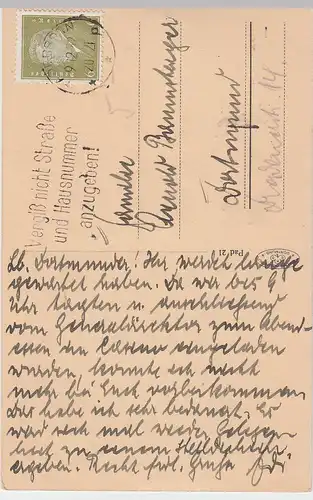 Vergiß nicht Straße
und Hausnummer
anzugeben!
Familie
Dortmund
Pad 21
Lb. Dortmunder! Ihr werdet lange
gewartet haben. Da wir bis 9
Uhr tagten u. anschliessend
vom Generaldirektor zum Abend-
essen im Casino eingeladen
wurden, konnte ich nicht
mehr bei Euch vorbeikommen
Das habe ich sehr bedauert. Es
wird sich mal wieder Gelegen-
heit zu einem
ergeben. Recht frdl. Grüße